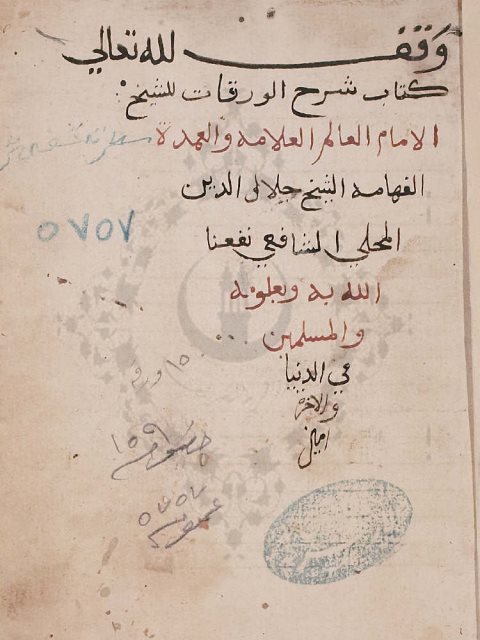 وقف لله تعالي
كتاب شرح الورقات للشيخ
الامام العالم العلامه والعمدة
الفهامه الشيخ جلال الدين
المحلي الشافعي نفعنا
الله به وبعلومه
والمسلمين
في الدنيا
والاخرة
امين
٥٧٥٧
١٥ ورقه
خصوص ١٥٩
عموم ٥٧٥٧